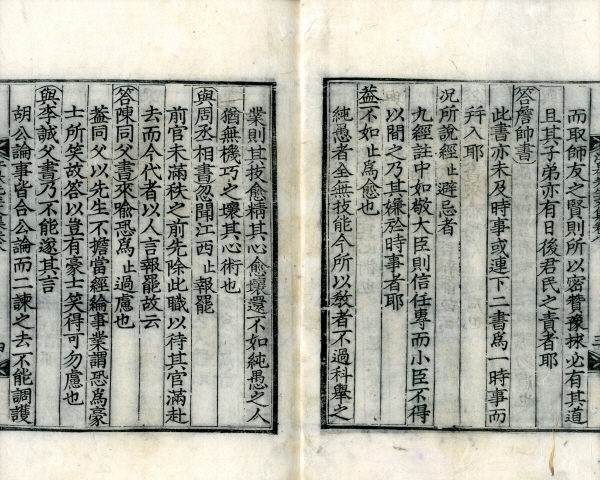 而取師友之賢則所以密贊豫抹必有其道
且其子弟亦有日後君民之責者耶
答詹帥書
此書亦未及時事或連下二書爲一時事而
幷入耶
况所說經止避忌者
九經註中如敬大臣則信任專而小臣不得
以間之乃其嫌於時事者耶
益不如止爲愈也
純愚者全無技能今所以敎者不過科擧之
業則其技愈精其心愈壞還不如純愚之人
猶無機巧之壞其心術也
與周丞相書忽聞江西止報罷
前官未滿秩之前先除此職以待其官滿赴
去而今代者以人言報罷故云
答陳同父書來喩恐爲止過慮也
蓋同父以先生不擔當經綸事業謂恐爲豪
士所笑故答以豈有豪士笑得可勿慮也
與李誠父書乃不能遂其言
胡公論事皆合公論而二諫之去不能調護
三
四